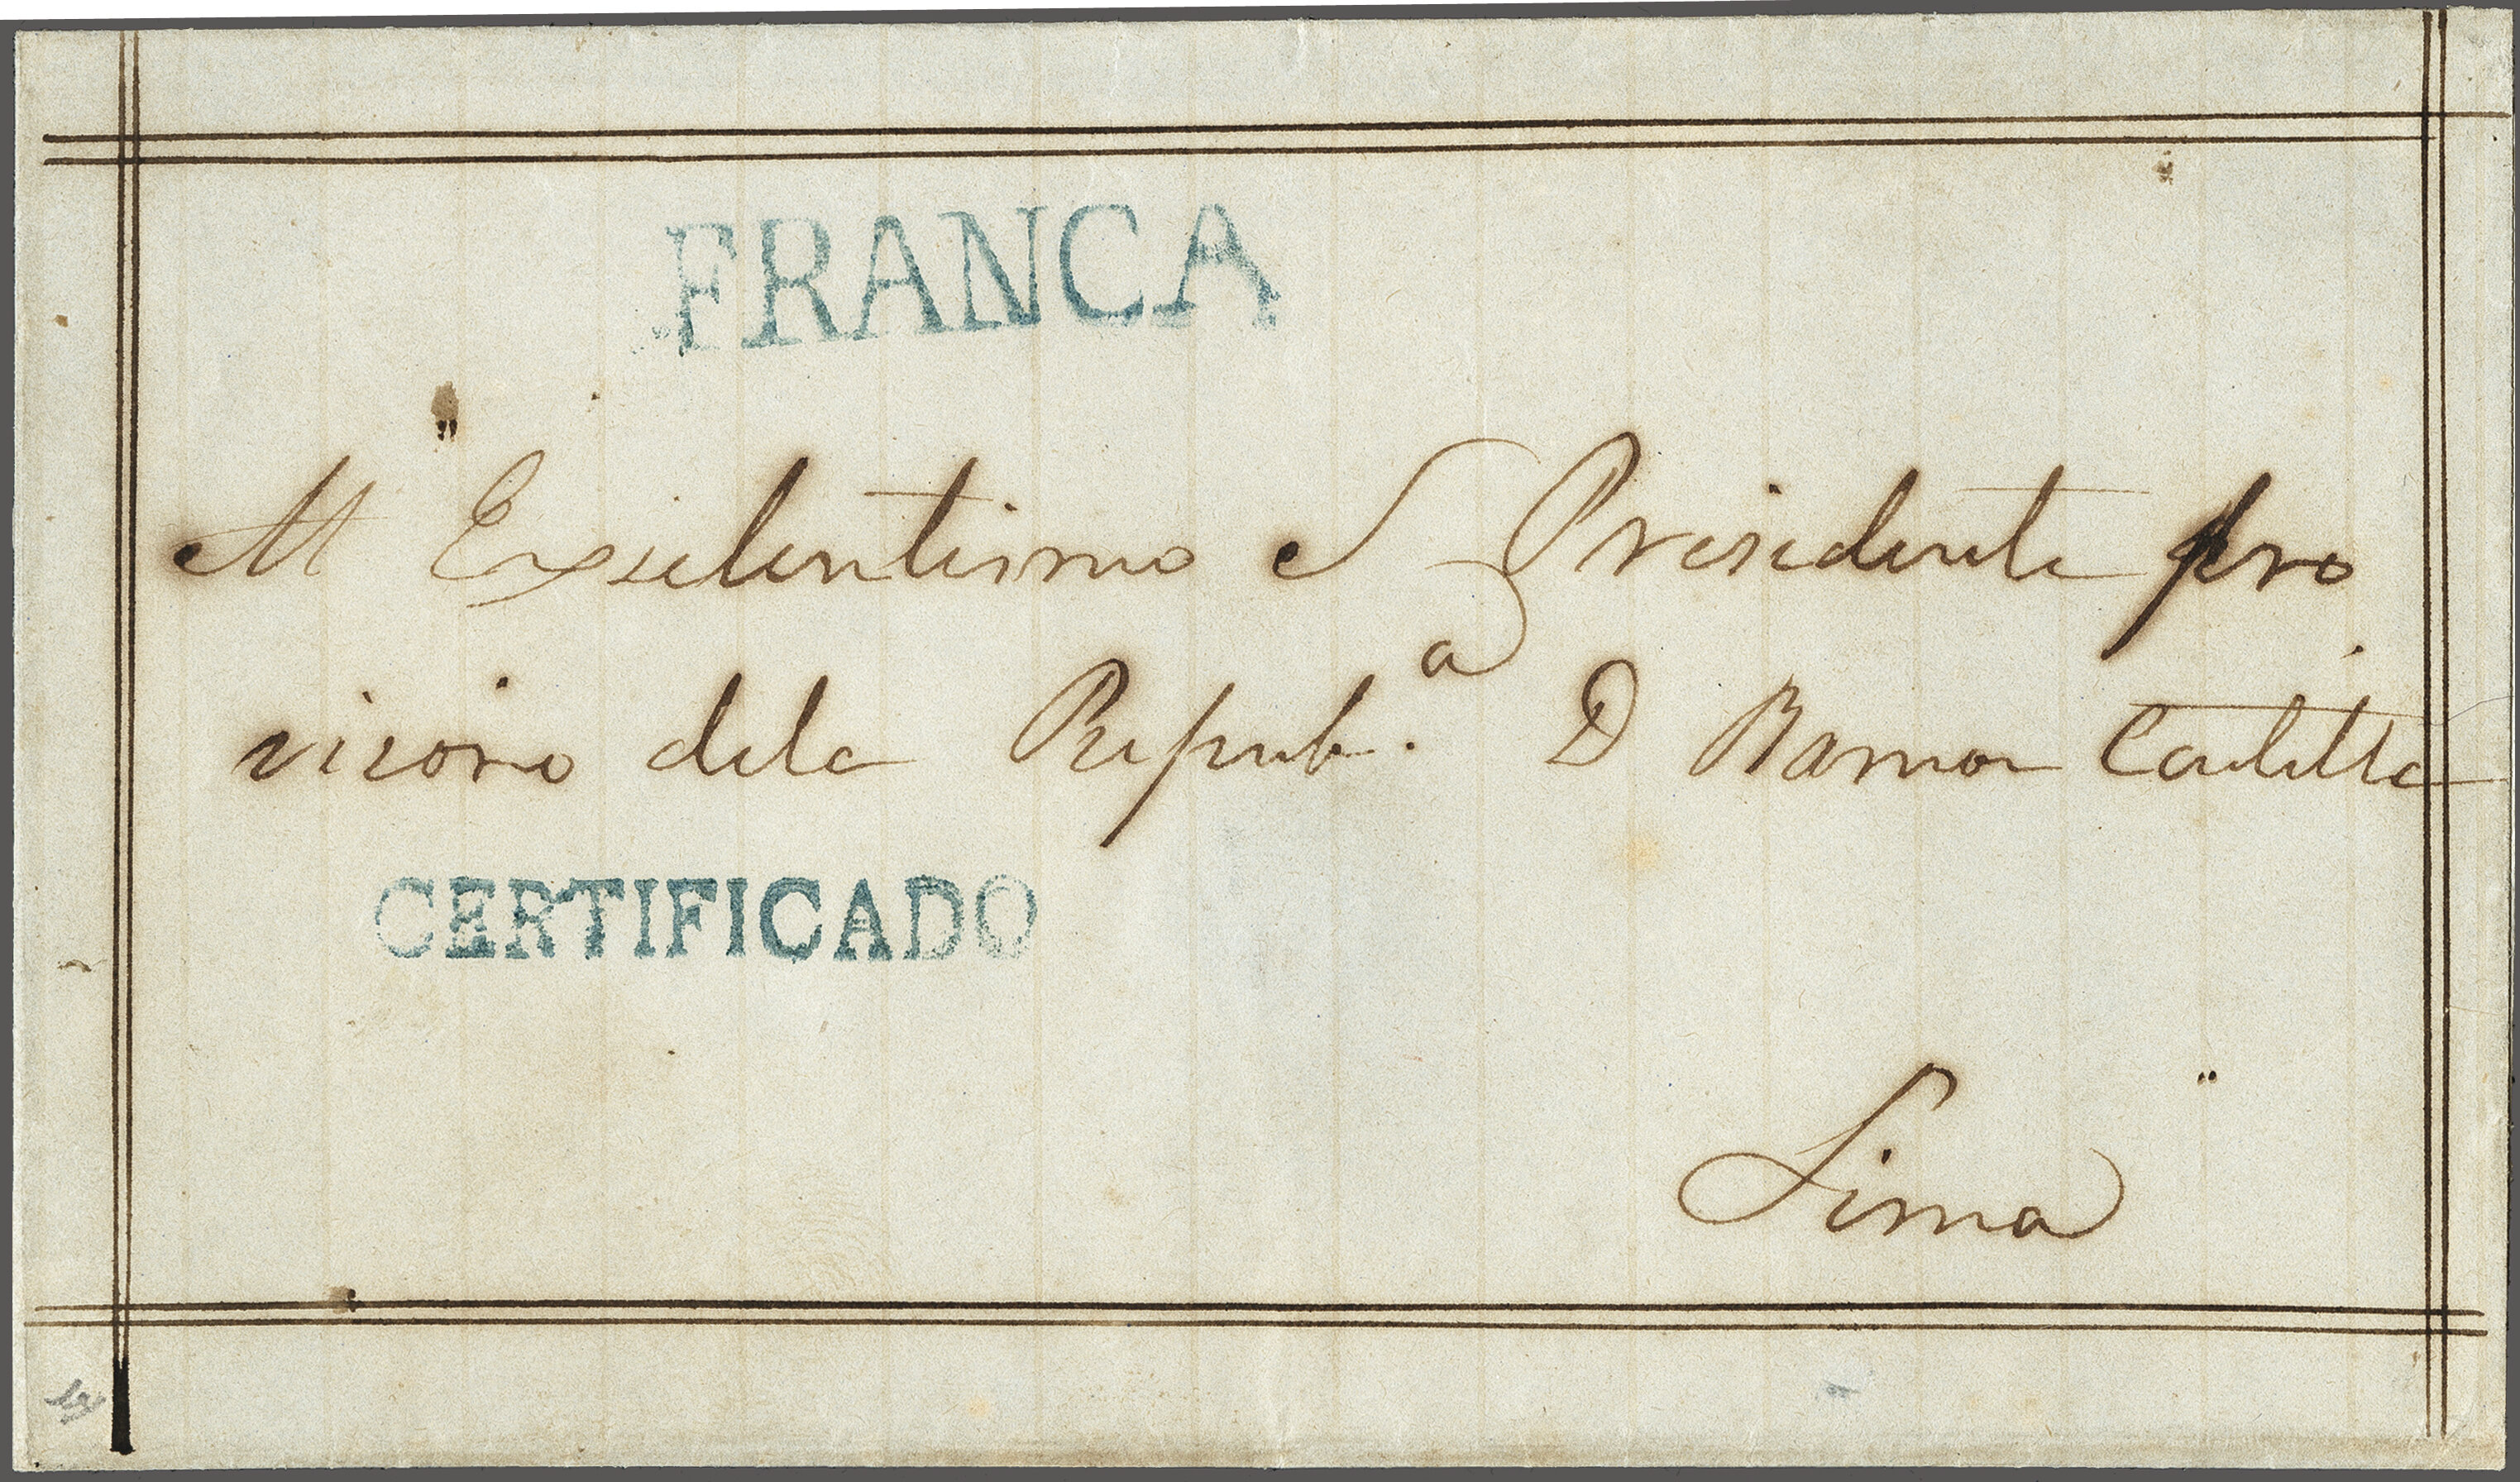 FRANCA
Al Exselentismo S Presidente pro
visorio dela Repub.ª D Ramon Castilla
CERTIFICADO
Lima